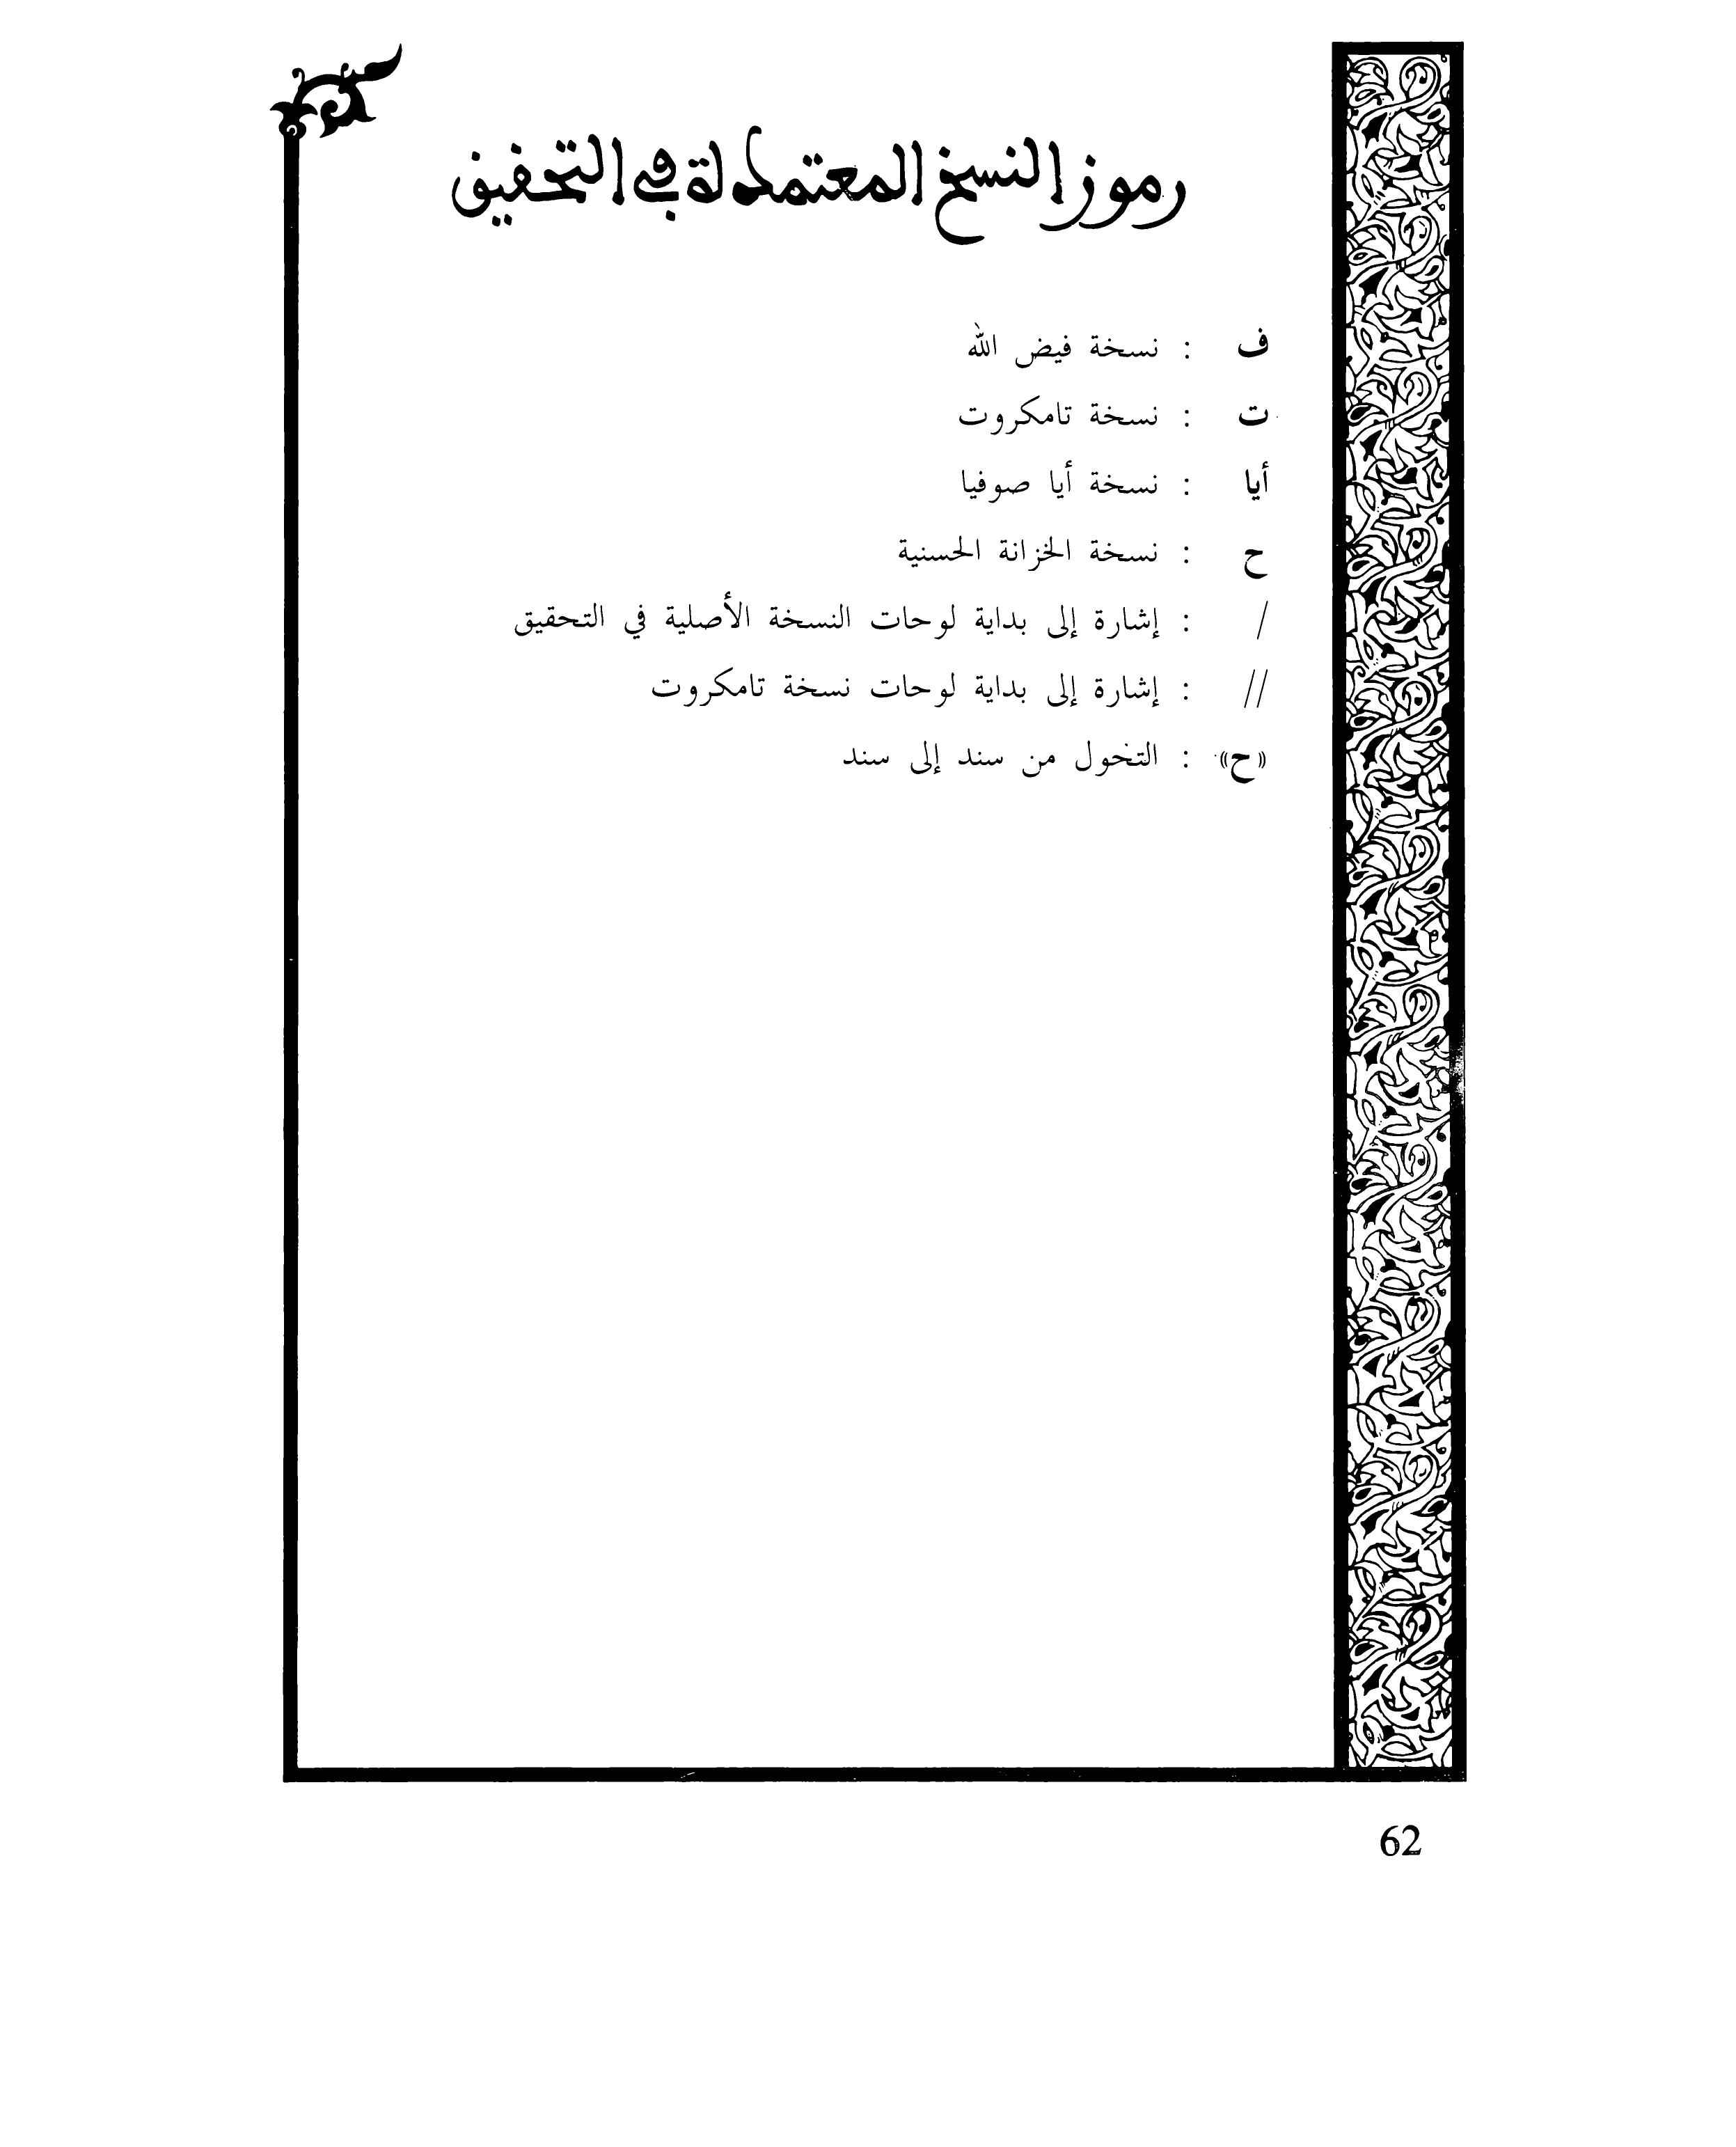 رموز النسخ المعتمدة في التحقيق
ف : نسخة فيض الله
ت : نسخة تامكروت
أيا : نسخة أيا صوفيا
ح : نسخة الخزانة الحسنية
/ : إشارة إلى بداية لوحات النسخة الأصلية في التحقيق
// : إشارة إلى بداية لوحات نسخة تامكروت
«ح» : التحول من سند إلى سند
62